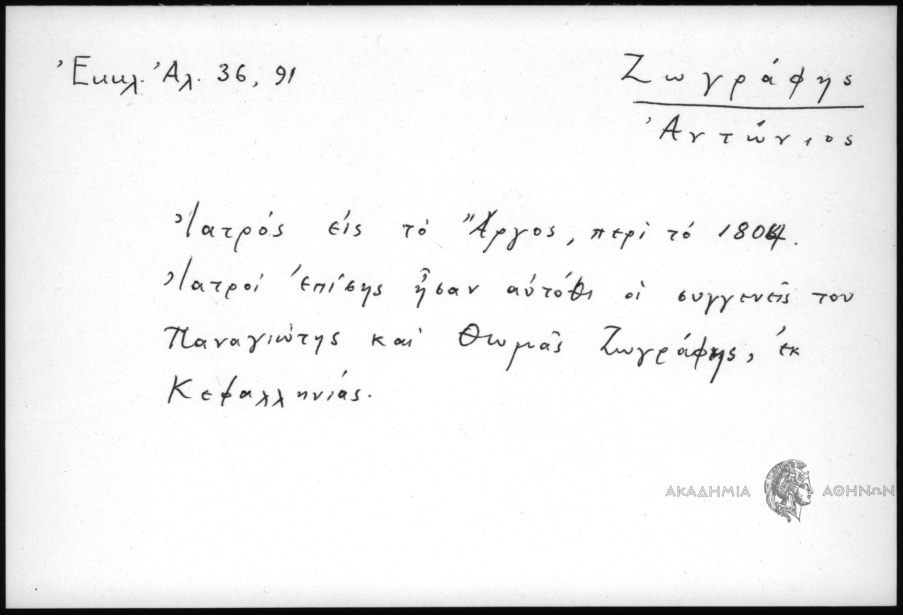 Ἐκκλ. Ἀλ. 36, 91
Ζωγράφης
Ἀντώνιος
Ἰατρός εἰς τὸ Ἄργος, περὶ τὸ 1804.
Ἰατροί ἐπίσης ἦσαν αὐτόθι οἱ συγγενεῖς του
Παναγιώτης καί Θωμᾶς Ζωγράφης, ἐκ
Κεφαλληνίας.
ΑΚΑΔΗΜΙΑ ΑΘΗΝΩΝ